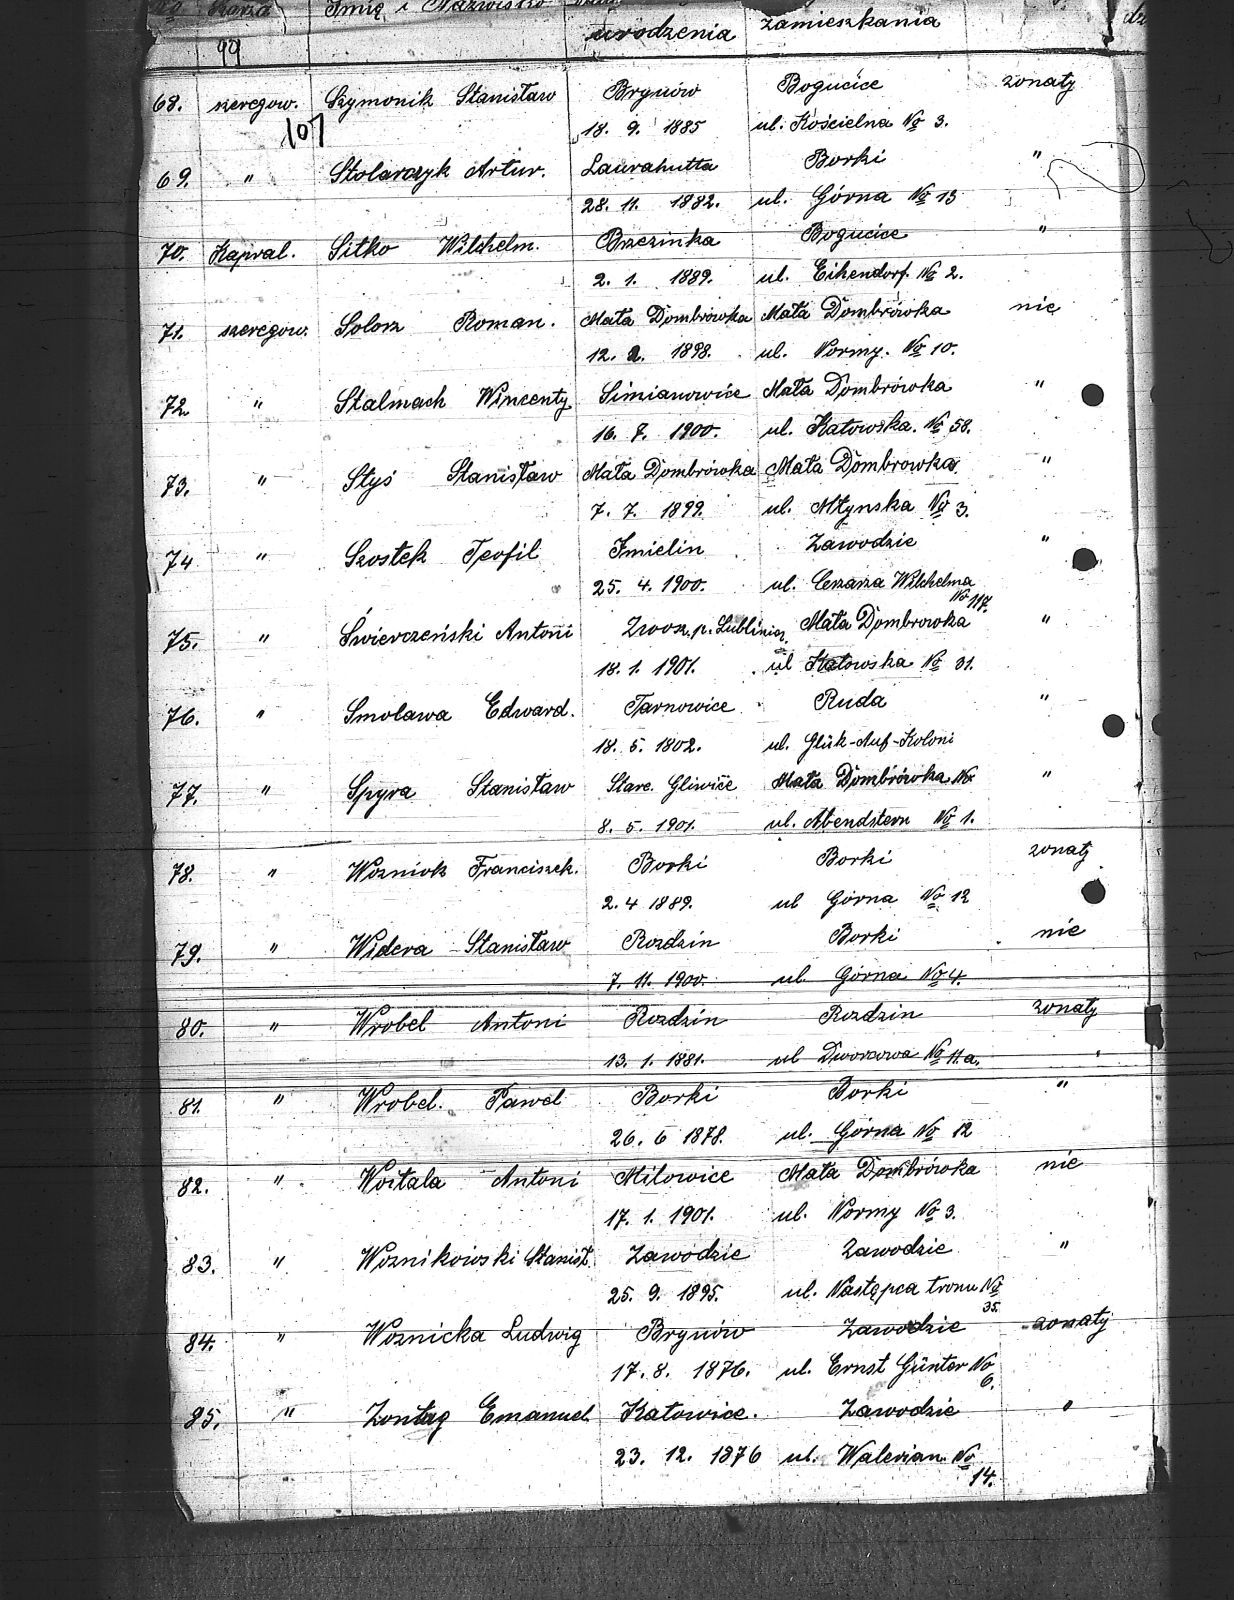 No Szarża Imię i Nazwisko
urodzenia zamieszkania
99
68. szeregow. Szymonik Stanisław Brynów Bogucice zonaty
107 18. 9. 1885 ul. Kościelna No 3.
69. " Stolarczyk Artur. Laurahutta Borki "
28. 11. 1882. ul. Górna No 13
70. Kapral. Sitko Wilchelm. Brzezinka Bogucice "
2. 1. 1889. ul. Eikendorf. No 2.
71. szeregow. Solorz Roman. Mała Dombrówka Mała Dombrówka nie
12. 2. 1898. ul. Normy. No 10.
72. " Stalmach Wincenty Simianowice Mała Dombrówka "
16. 7. 1900. ul. Katowska. No 58.
73. " Styś Stanisław Mała Dombrówka Mała Dombrowka "
7. 7. 1899. ul. Młynska No 3.
74 " Szostek Teofil Imielin Zawodzie "
25. 4. 1900. ul. Cezarza Wilchelma
No 117.
75. " Świerczeński Antoni Zwoz. p. Lubliniez. Mała Dombrowka "
18. 1. 1901. ul Katowska No 31.
76. " Smolawa Edward. Tarnowice Ruda "
18. 5. 1802. ul. Glük-Auf-Koloni
77. " Spyra Stanisław Stare. Gliwice Mała Dombrówka No "
8. 5. 1901. ul. Abendstern No 1.
78. " Wozniok Franciszek. Borki Borki zonaty
2. 4 1889. ul Górna No 12
79. " Widera Stanisław Rozdzin Borki nie
7. 11. 1900. ul Górna No 4.
80. " Wrobel Antoni Rozdzin Rozdzin zonaty
13. 1. 1881. ul Dworcowa No 11a.
81. " Wrobel. Paweł Borki Borki "
26. 6 1878. ul. Górna No 12
82. " Woitala Antoni Milowice Mała Dombrówka nie
17. 1. 1901. ul. Normy No 3.
83. " Woznikowski Stanisł. Zawodzie Zawodzie "
25. 9. 1895. ul. Następca tronu No
35.
84. " Woznicka Ludwig Brynów Zawodzie zonaty
17. 8. 1876. ul. Ernst Günter No
6.
85. " Zontag Emanuel Katowice. Zawodzie "
23. 12. 1876 ul. Walerian. No
14.